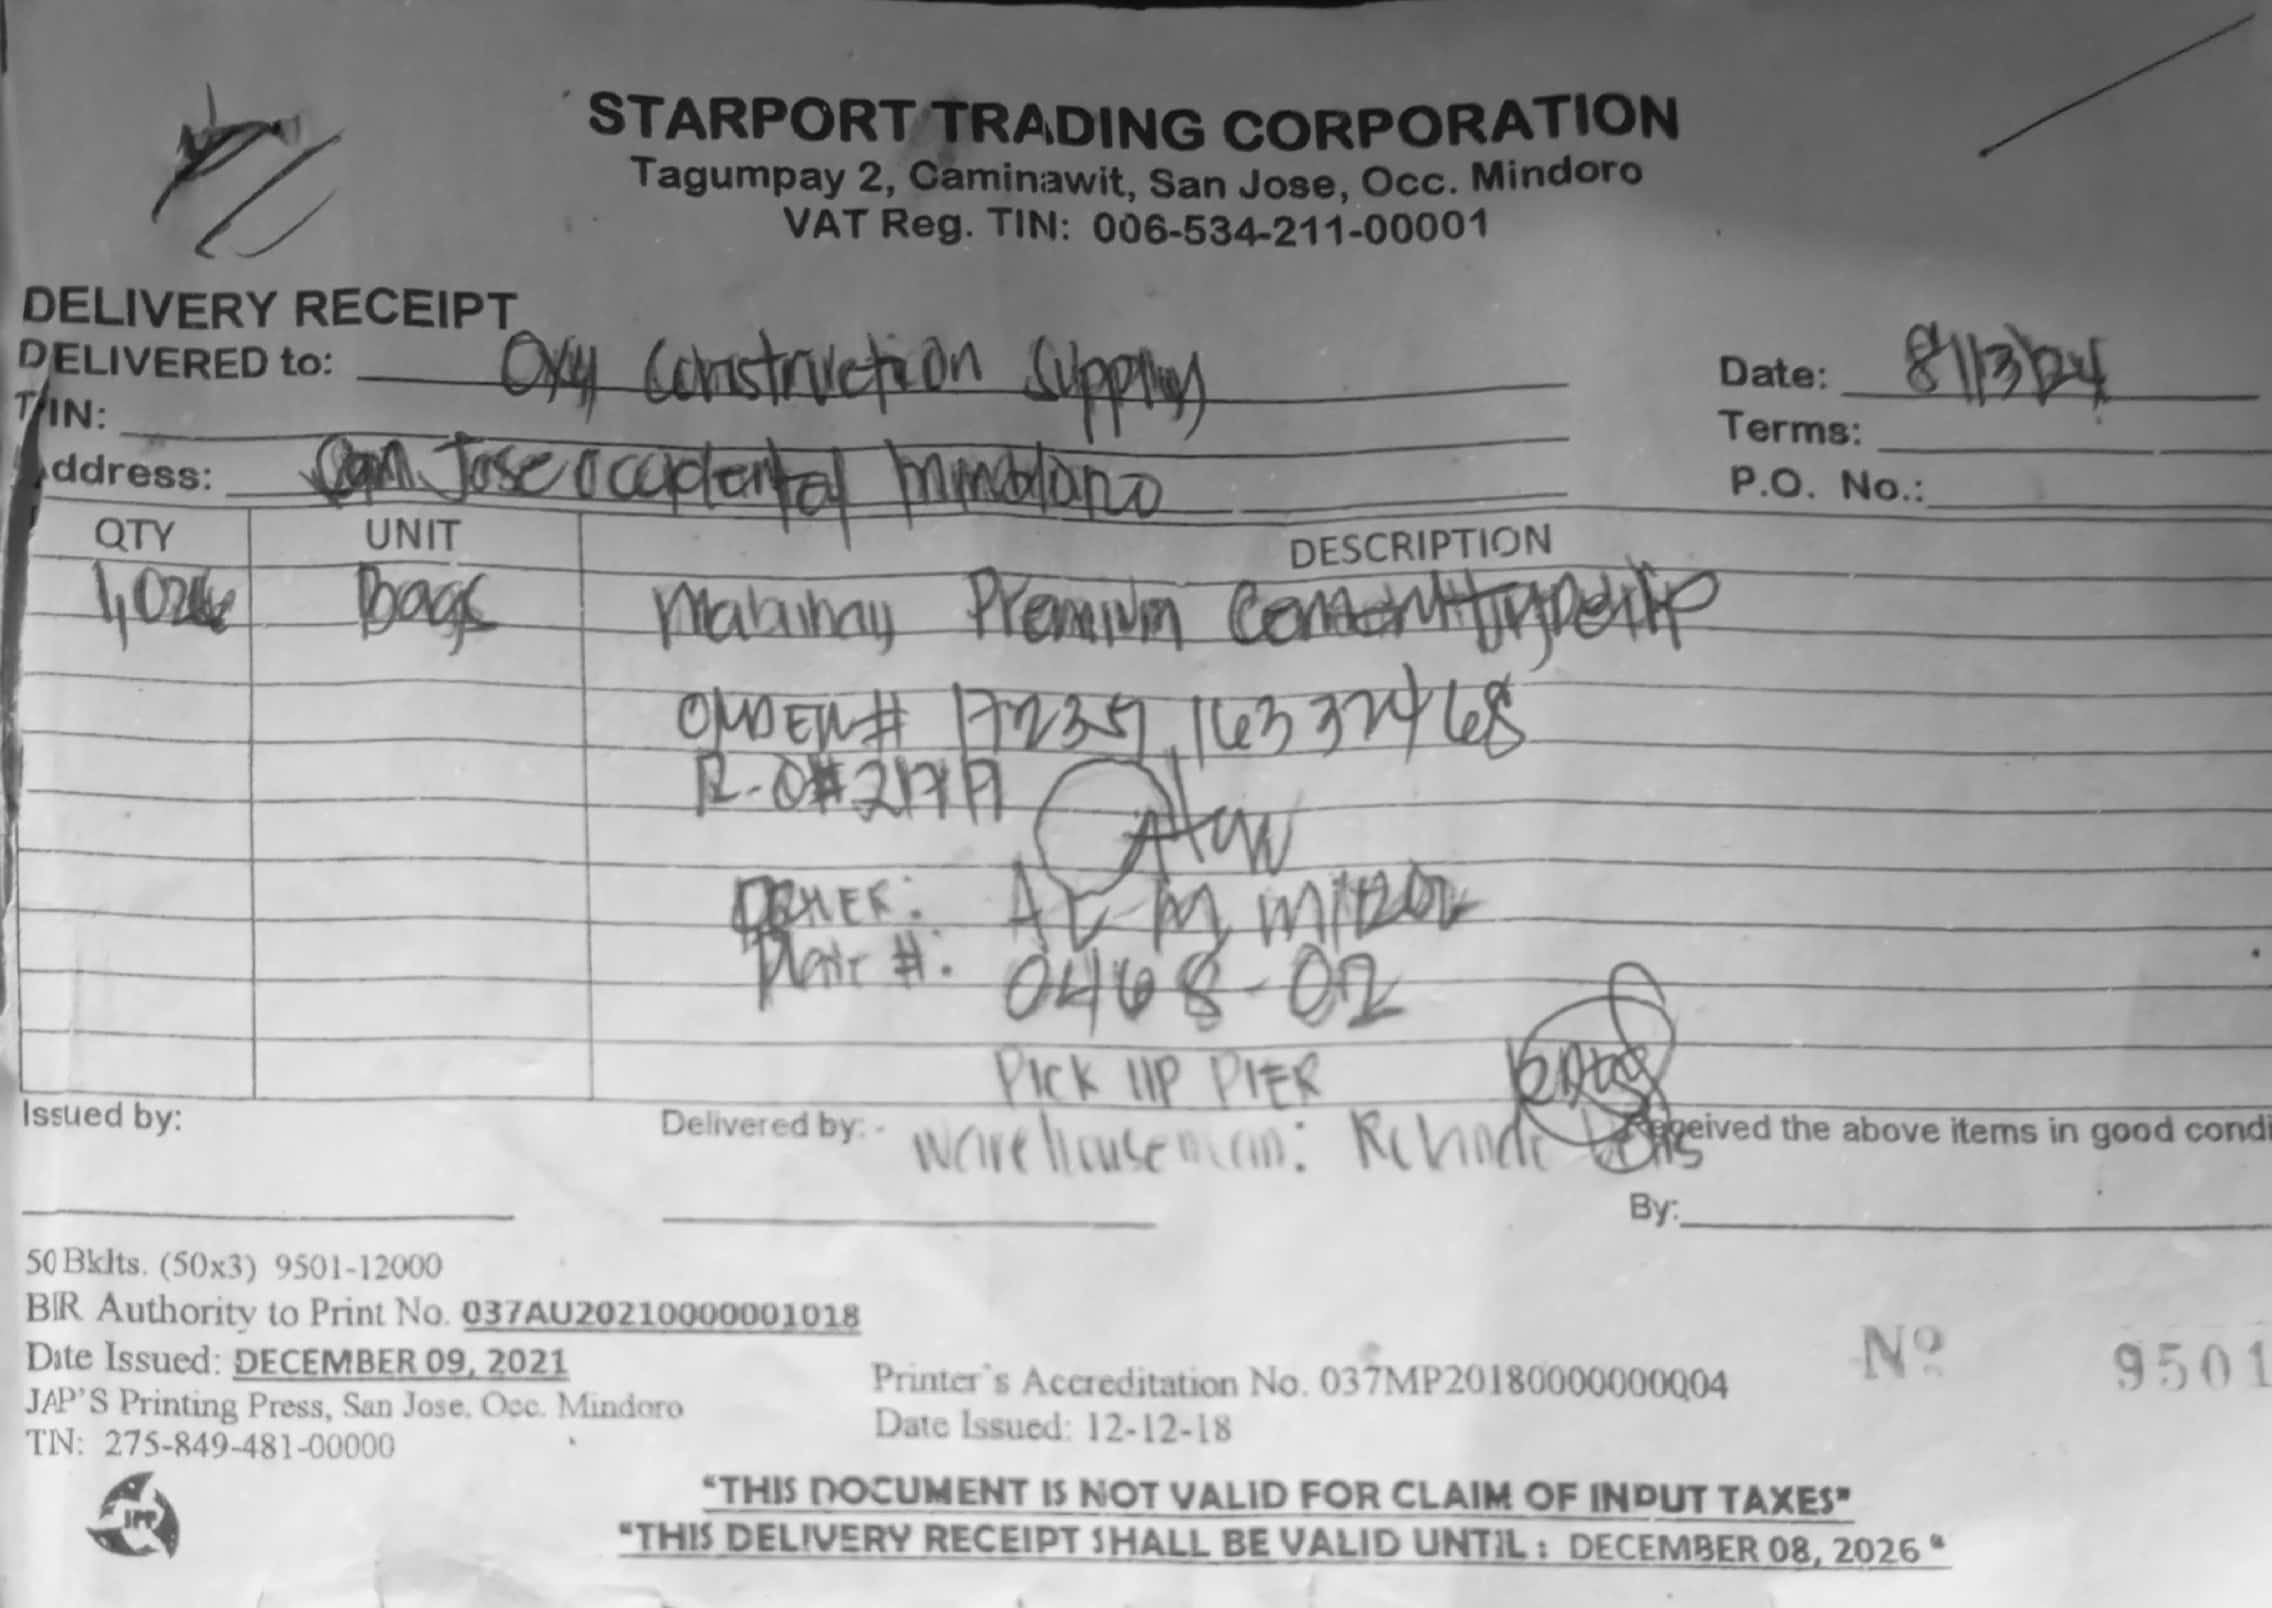 STARPORT TRADING CORPORATION
Tagumpay 2, Caminawit, San Jose, Occ. Mindoro
VAT Reg. TIN: 006-534-211-00001
DELIVERY RECEIPT
DELIVERED to: Oxy Construction Supply
Date: 8/13/24
TIN:
Terms:
Address: San Jose Occidental Mindoro
P.O. No.:
QTY UNIT DESCRIPTION
Bags Mabuhay Premium Cement
ORDER#
R.O#
Plate #: 0468-02
PICK UP PIER
Issued by:
Delivered by:
Warehouseman:
Received the above items in good condi
By:
50 Bklts. (50x3) 9501-12000
BIR Authority to Print No. 037AU20210000001018
Date Issued: DECEMBER 09, 2021
JAP'S Printing Press, San Jose, Occ. Mindoro
TIN: 275-849-481-00000
Printer's Accreditation No. 037MP20180000000004
Date Issued: 12-12-18
Nº 9501
JPP
"THIS DOCUMENT IS NOT VALID FOR CLAIM OF INPUT TAXES"
"THIS DELIVERY RECEIPT SHALL BE VALID UNTIL: DECEMBER 08, 2026"